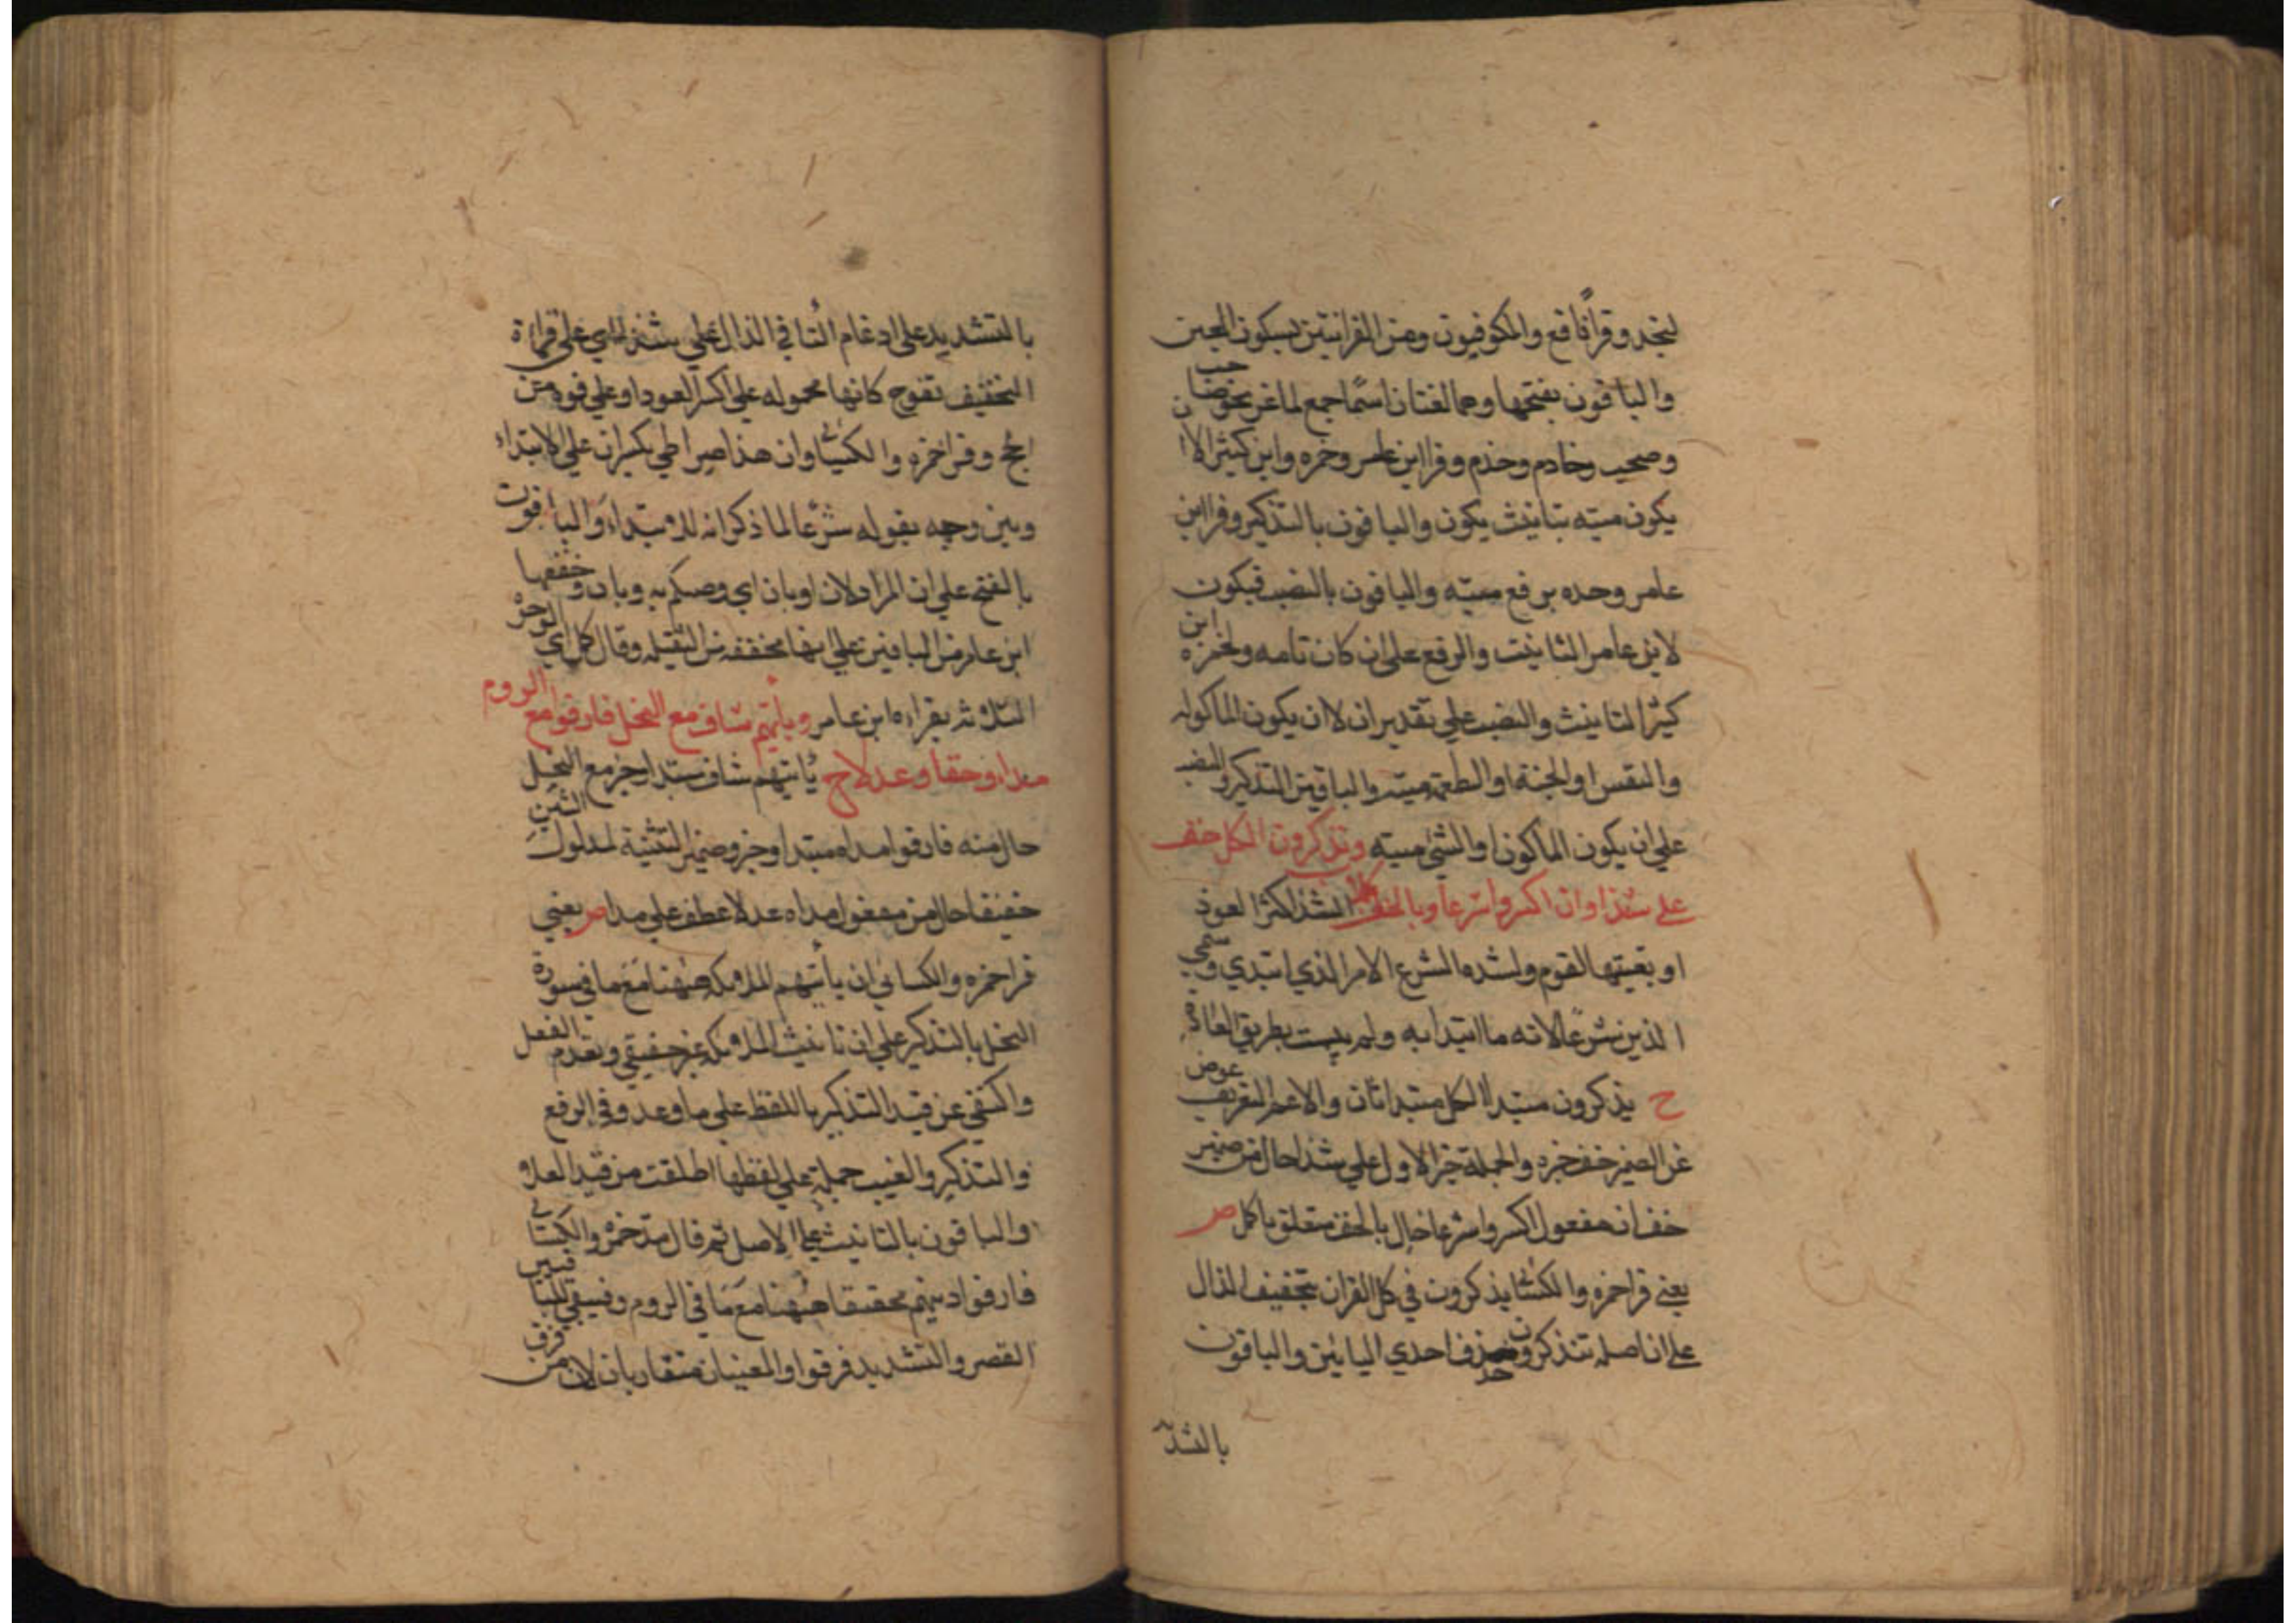 لنجد وقرا نافع والكوفيون ومن القرانيتين بسكون العين
والباقون بفتحها وهما لغتان اسما جمع لماعز نحو ضان
وصحب وخادم وخدم وقرا ابن عامر وحمزه وابن كثير الا ان
يكون ميته بتانيث يكون والباقون بالتذكير وقرا ابن
عامر وحده برفع ميته والباقون بالنصب فيكون
لابن عامر التانيث والرفع علي ان كان تامه ولحمزه وابن
كثير التانيث والنصب علي تقدير ان لا ان يكون الماكوله
والنفس او الجثة او الطعمة ميته والباقين التذكير والنصب
علي ان يكون الماكون او الشي ميته وتذكرون الكل خف
علي شذا وان اكسروا شرعا وبالخف كملا الشذا كثر العود
او بقيتها القوم ولشده الشرع الامر الذي ابتدي وسمي
الذين شرعا لانه ما ابتدا به ولم بطريق العادة
ح يذكرون مبتدا الكل مبتدا ثان والاعم التعريف عوض
عن الضمير خف خبره والجملة خبر الاول علي شذا حال من ضمير
خف ان مفعول اكسروا شرعا حال بالخف متعلق باكمل ص
يعني قرا حمزه والكسائي يذكرون في كل القران بتخفيف الذال
علي ان اصله تتذكرون حذف احدي اليائين والباقون
بالتشد
بالتشديد علي ادغام التا في الذال علي شذا اي علي قراءة
التخفيف تفوح كانها محموله علي اكسر العود او علي قوه من
الحج وقرا حمزه والكسائي وان هذا صراطي بكسر ان علي الابتداء
وبين وجهه بقوله شرعا لما ذكر انه للابتداء والباقون
بالفتح علي ان المراد لان او بان اي وصيكم به وبان وخففها
ابن عامر من الباقين علي انها مخففه من الثقيله وقال كمل اي الوجوه
الثلاثه بقراءه ابن عامر وياتيهم شاف مع النحل فارقوا مع الروم
مداه خفيفا وعدلا ح ياتيهم شاف مبتدا وخبر مع النحل
حال منه فارقوا مداه مبتدا وخبر وضمير التثنية لمدلول الشين
خفيفا حال من مفعول مداه عدلا عطف علي مدا ص يعني
قرا حمزه والكسائي ان ياتيهم الملائكة ههنا مع ما في سورة
النحل بالتذكير علي ان تانيث الملائكة غير حقيقي وتقدم الفعل
واكتفي عن قيد التذكير باللفظ علي ما وعد وفي الرفع
والتذكير والغيب جملة علي لفظها اطلقت من قيد العلا
والباقون بالتانيث علي الاصل ثم قال مد حمزه والكسائي
فارقوا دينهم مخففا ههنا مع ما في الروم وفيبقي للباقين
القصر والتشديد فرقوا والمعنيان متقاربان لان من فرق